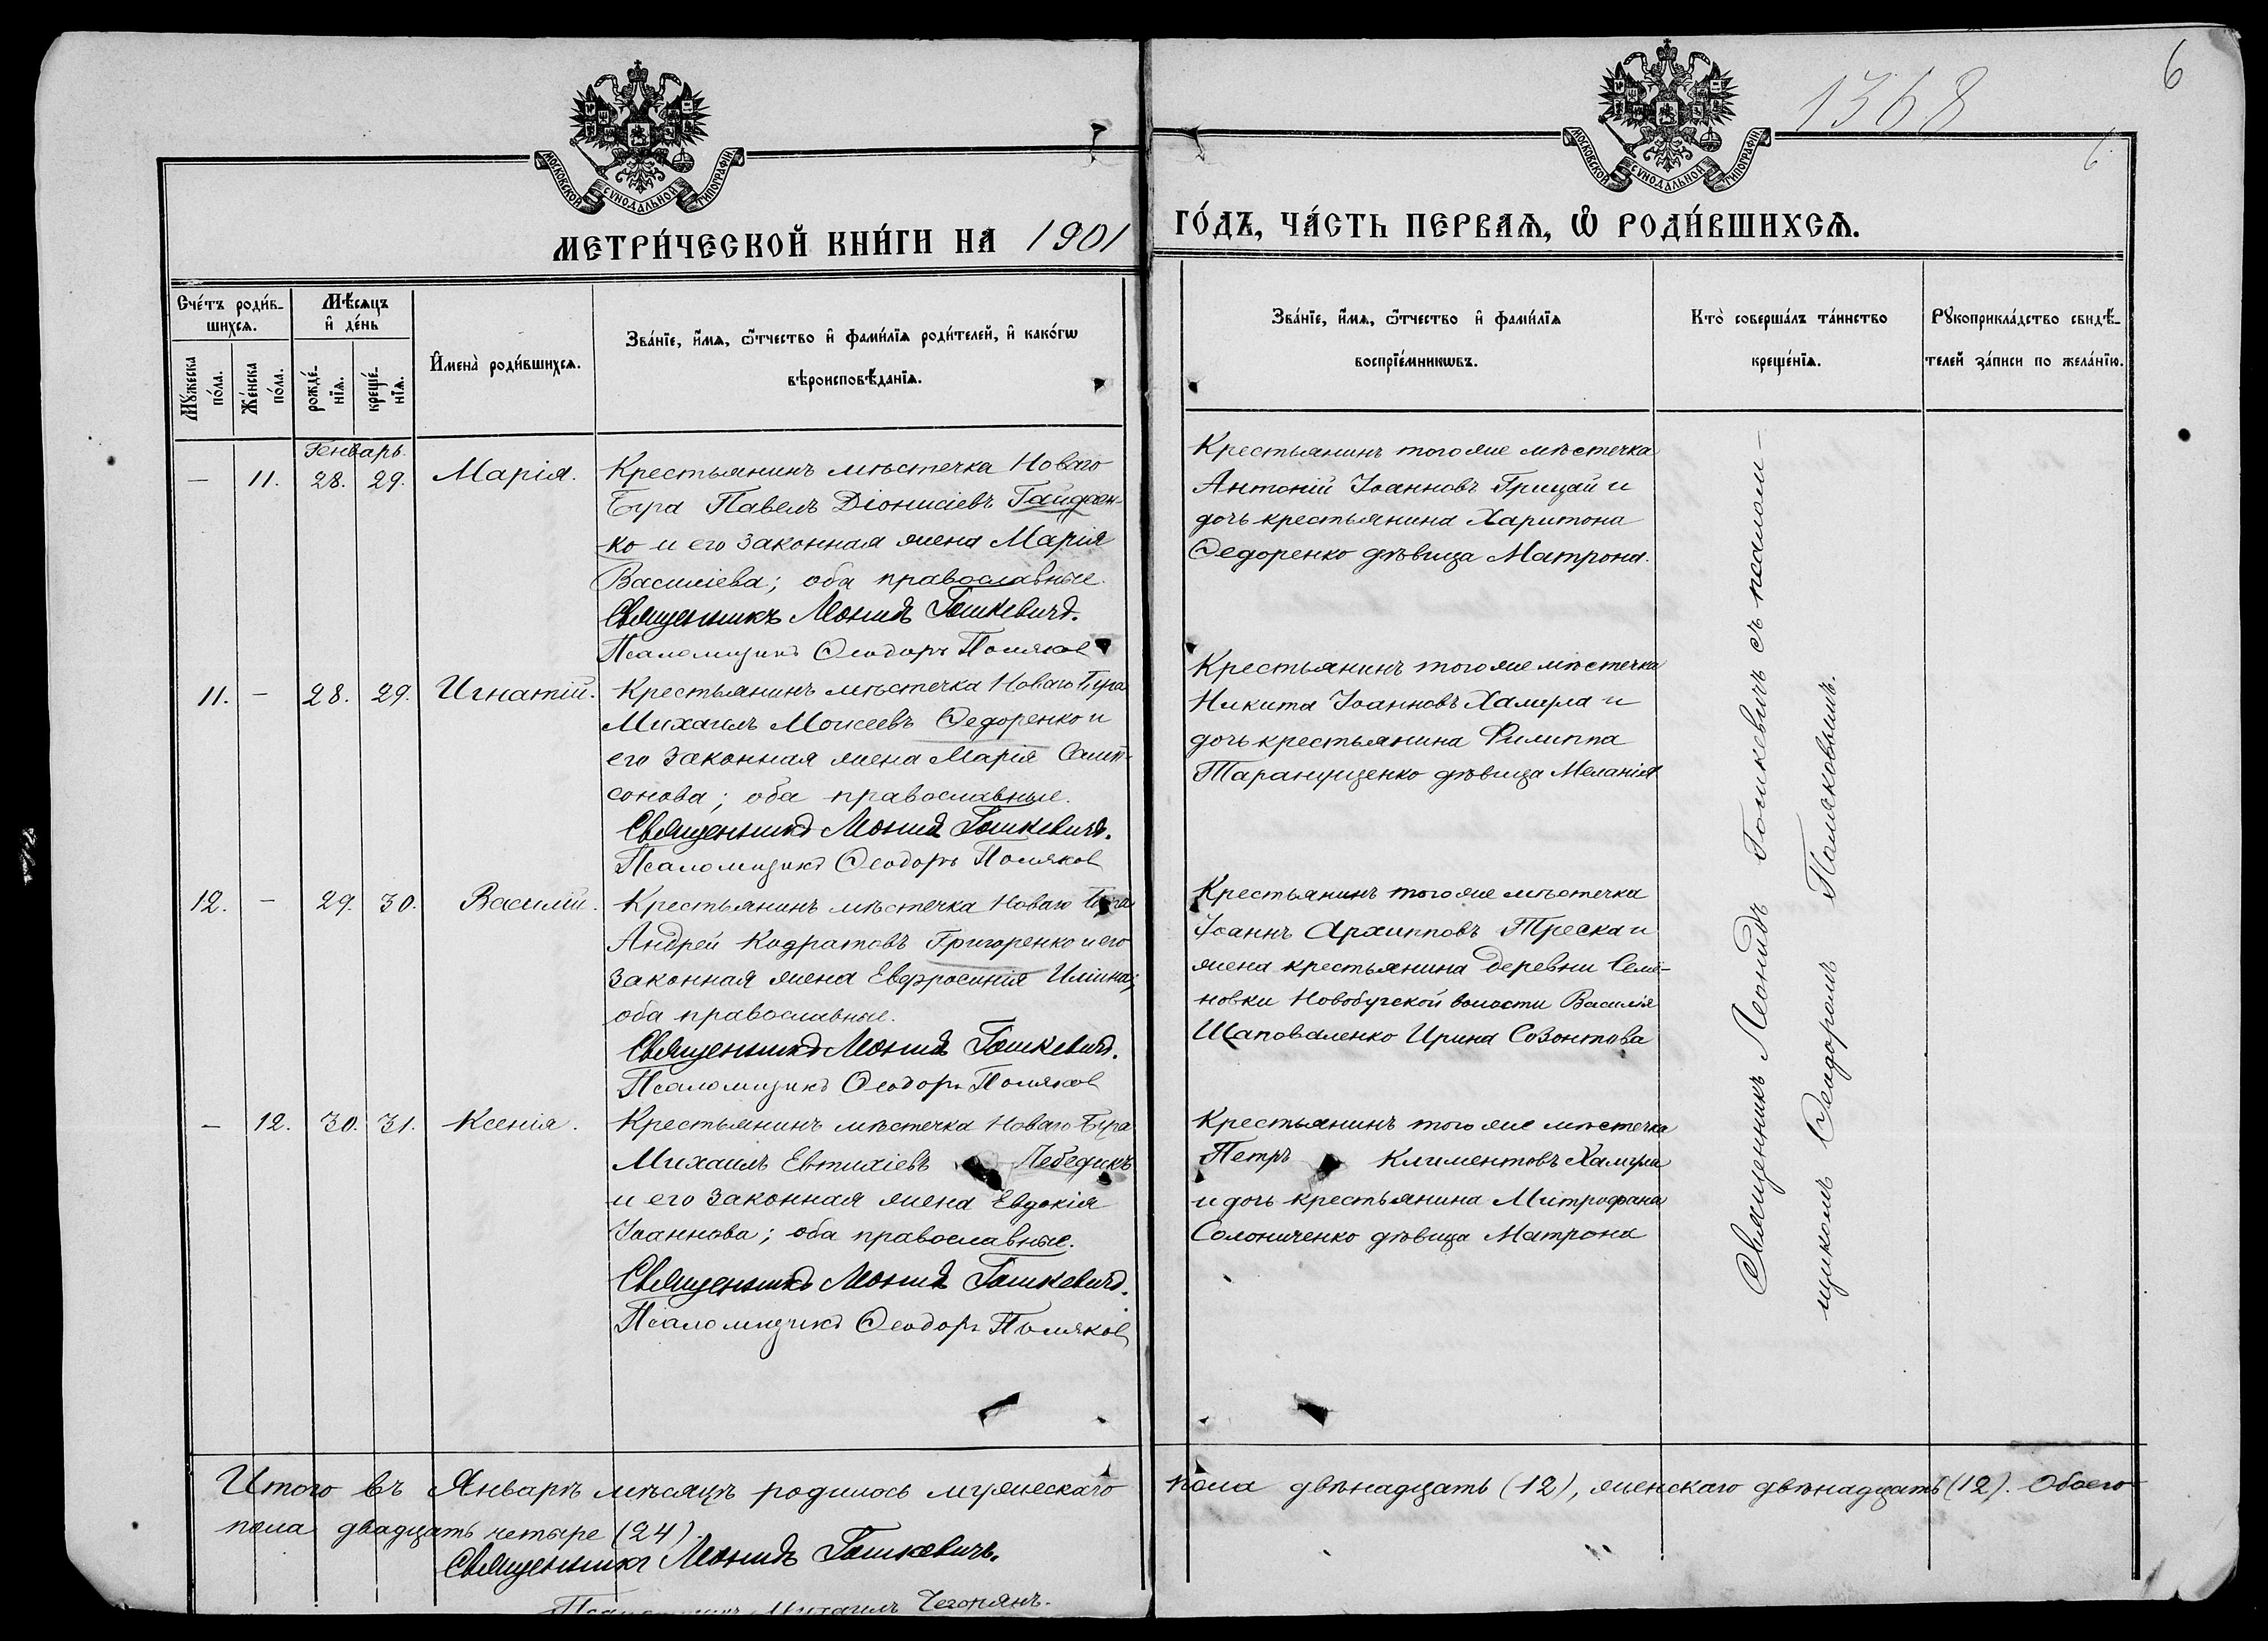 1368
6
6
МОСКОВСКОЙ СѴНОДАЛЬНОЙ ТИПОГРАФІИ
МОСКОВСКОЙ СѴНОДАЛЬНОЙ ТИПОГРАФІИ
МЕТРИ́ЧЕСКОЙ КНИ́ГИ НА 1901 ГО́ДЪ, ЧА́СТЬ ПЕРВАѦ, Ѡ РОДИ́ВШИХСѦ.
Счéтъ роди́в-
шихсѧ.
Мѣ́сѧцъ
и҆ дéнь
Мꙋ́жеска
по́ла.
Жéнска
по́ла.
рождé-
нїѧ.
крещé-
нїѧ.
И҆мена̀ роди́вшихсѧ.
Зва́нїе, и҆́мѧ, ѻ҆́тчество и҆ фами́лїѧ роди́телей, и҆ како́гѡ
вѣроисповѣ́данїѧ.
Зва́нїе, и҆́мѧ, ѻ҆́тчество и҆ фами́лїѧ
воспрїе́мникѡвъ.
Кто̀ соверша́лъ та́инство
крещéнїѧ.
Рꙋкоприкла́дство свидѣ́-
телей за́писи по жела́нїю.
Генварь.
— 11. 28. 29. Марія.
Крестьянинъ мѣстечка Новаго
Буга Павелъ Діонисіевъ Гайдаен-
ко и его законная жена Марія
Василіева; оба православные.
Священникъ Леонидъ Гошкевичъ.
Псаломщикъ Ѳеодоръ Поляков
Крестьянинъ того же мѣстечка
Антоній Іоанновъ Грицай и
дочь крестьянина Харитона
Ѳедоренко дѣвица Матрона.
11. — 28. 29. Игнатій.
Крестьянинъ мѣстечка Новаго Буга
Михаилъ Моисеевъ Ѳедоренко и
его законная жена Марія Самп-
сонова; оба православные.
Священникъ Леонидъ Гошкевичъ.
Псаломщикъ Ѳеодоръ Поляков
Крестьянинъ того же мѣстечка
Никита Іоанновъ Хамула и
дочь крестьянина Филиппа
Таранущенко дѣвица Меланія
12. — 29. 30. Василій.
Крестьянинъ мѣстечка Новаго Буга
Андрей Кодратовъ Григоренко и его
законная жена Евфросинія Иліина;
оба православные.
Священникъ Леонидъ Гошкевичъ.
Псаломщикъ Ѳеодоръ Поляков
Крестьянинъ того же мѣстечка
Іоаннъ Архипповъ Треска и
жена крестьянина деревни Семе-
новки Новобугской волости Василія
Шаповаленко Ирина Созонтова
— 12. 30. 31. Ксенія.
Крестьянинъ мѣстечка Новаго Буга
Михаилъ Евтихіевъ Лебедикъ
и его законная жена Евдокія
Іоаннова; оба православные.
Священникъ Леонидъ Гошкевичъ.
Псаломщикъ Ѳеодоръ Поляков
Крестьянинъ того же мѣстечка
Петръ Климентовъ Хамула
и дочь крестьянина Митрофана
Солониченко дѣвица Матрона
Священникъ Леонидъ Гошкевичъ съ псалом-
щикомъ Ѳеодоромъ Поляковымъ.
Итого въ Январѣ мѣсяцѣ родилось мужескаго пола двѣнадцать (12), женскаго двѣнадцать (12). Обоего
пола двадцать четыре (24).
Священникъ Леонидъ Гошкевичъ.
Михаилъ